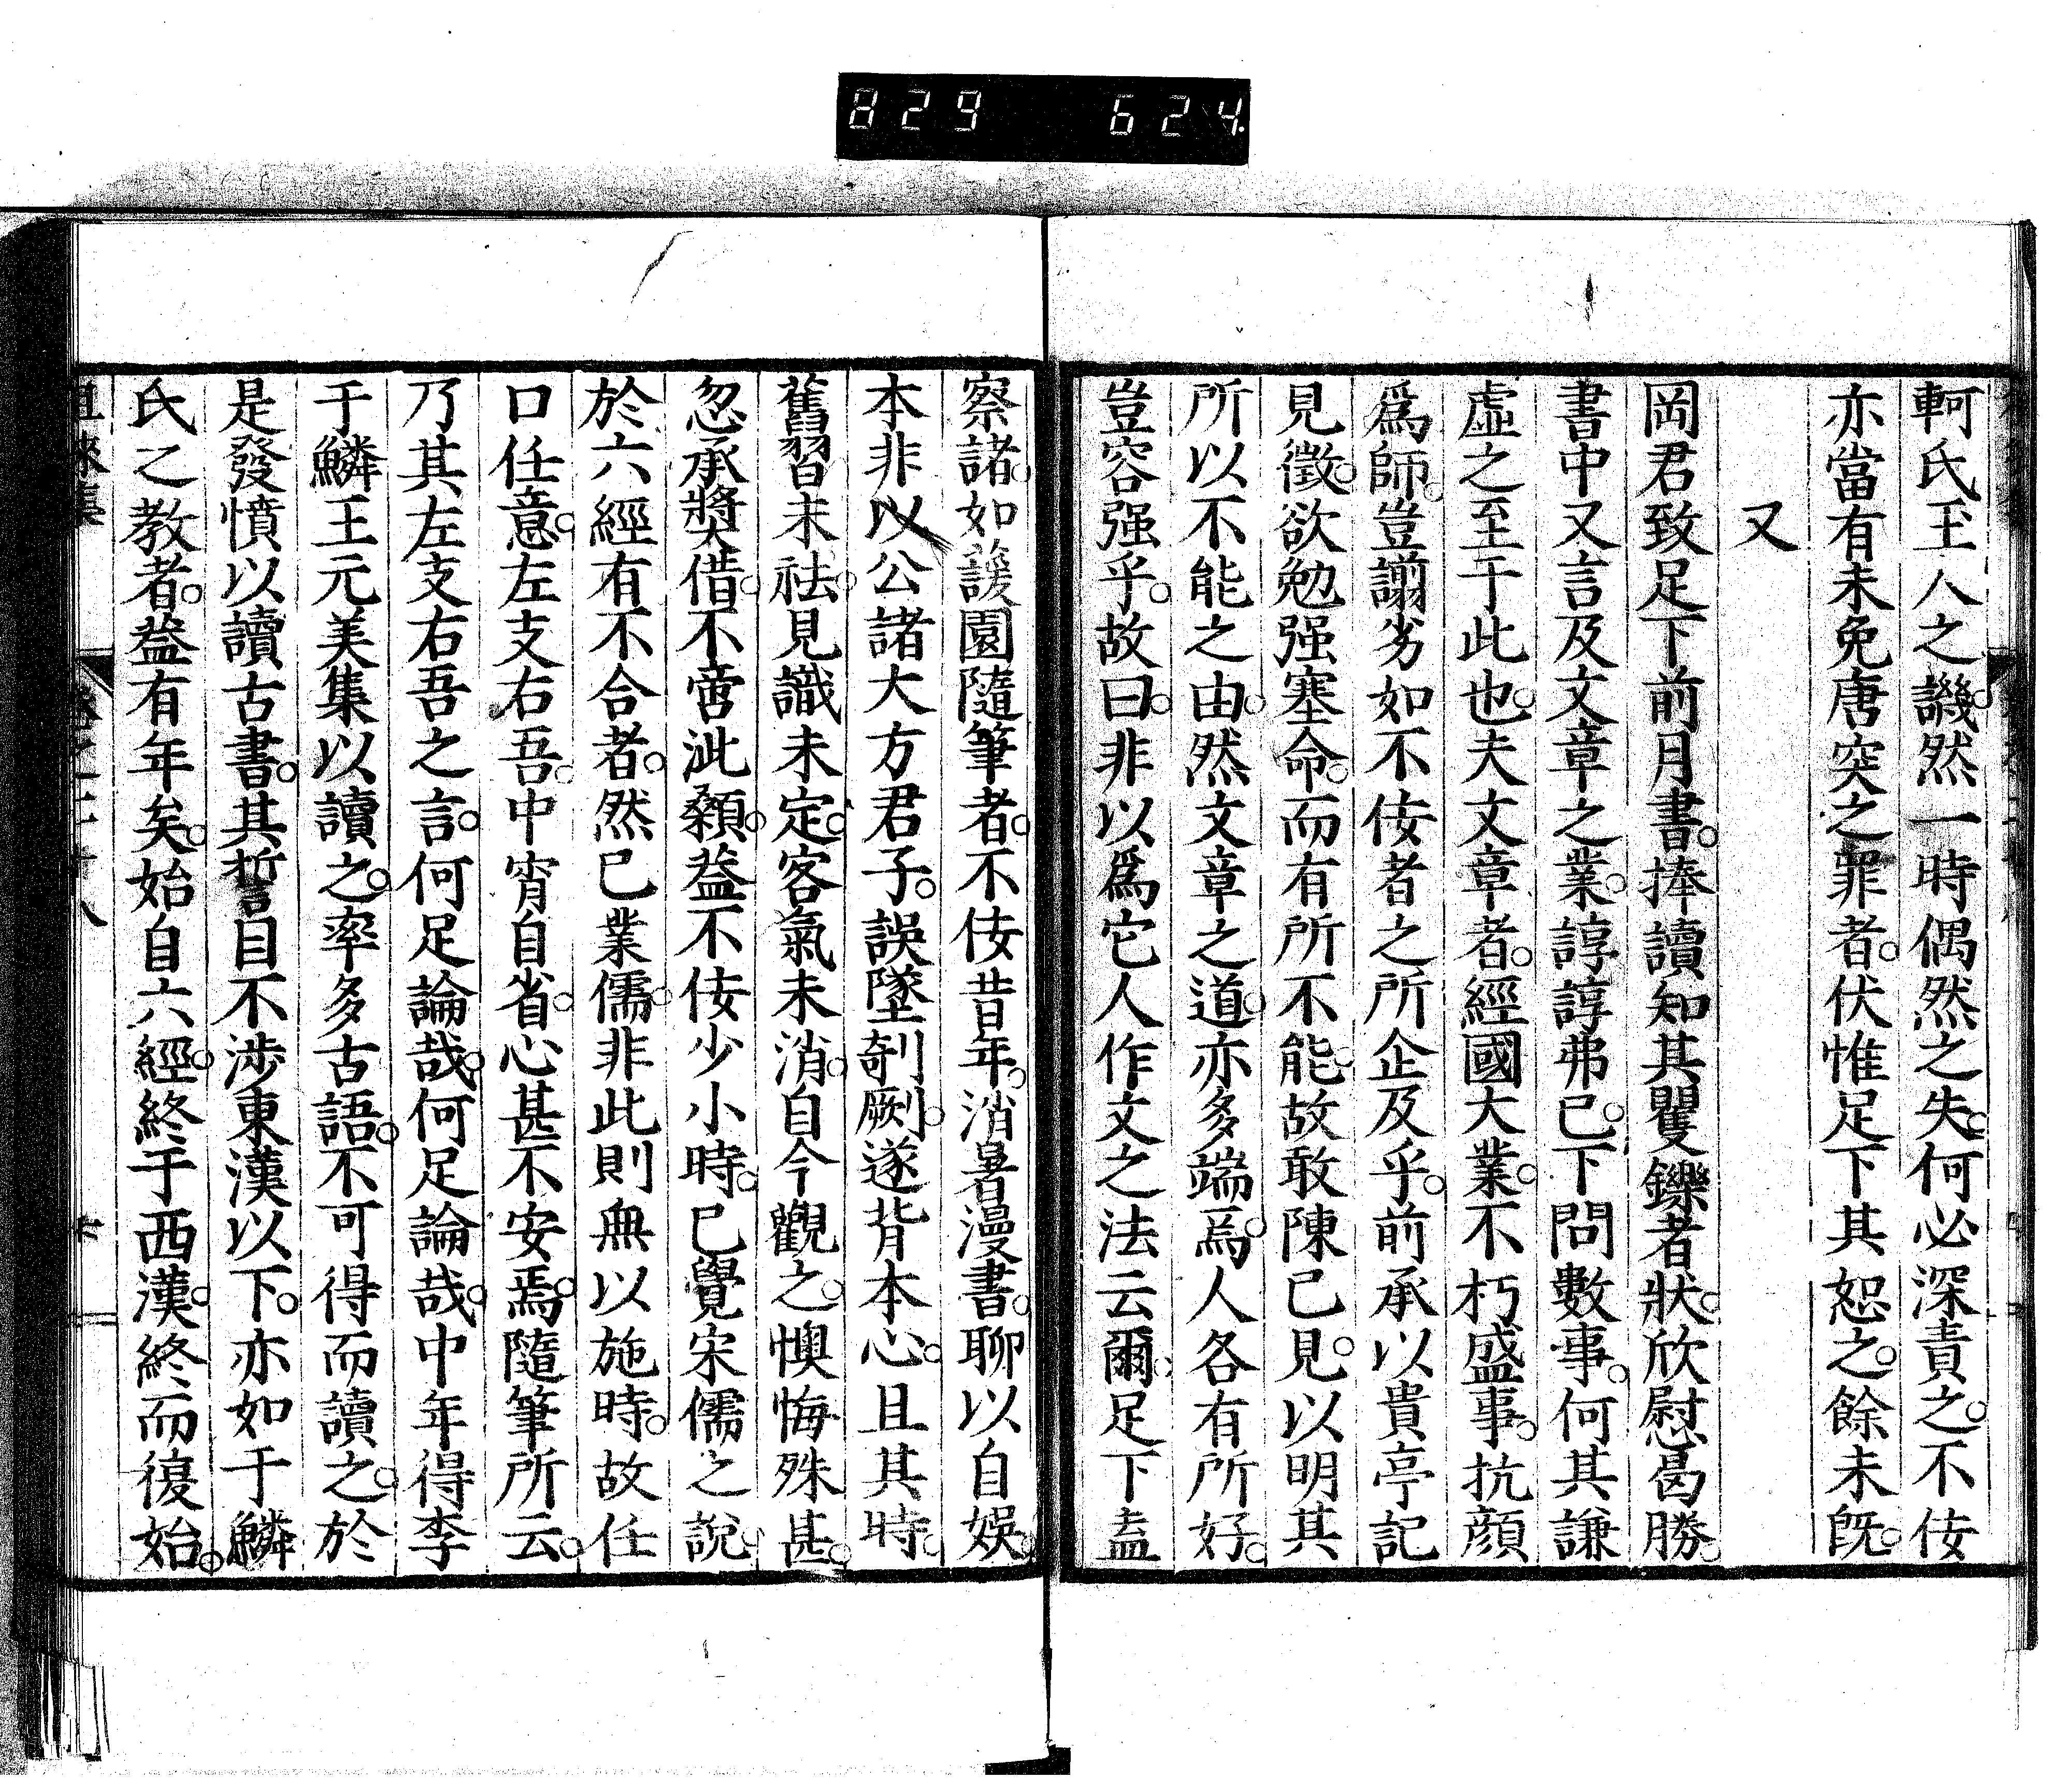 829 624
軻氏王人之譏。然一時偶然之失。何必深責之。不佞
亦當有未免唐突之罪者。伏惟足下其恕之。餘未既。
又
岡君致足下前月書。捧讀知其矍鑠者狀。欣慰曷勝。
書中又言及文章之業。諄諄弗已。下問數事。何其謙
虛之至于此也。夫文章者。經國大業。不朽盛事。抗顔
爲師。豈謭劣如不佞者之所企及乎。前承以貴亭記
見徵。欲勉强塞命。而有所不能。故敢陳已見。以明其
所以不能之由。然文章之道。亦多端焉。人各有所好。
豈容强乎。故曰。非以爲它人作文之法云爾。足下盍
察諸。如蘐園隨筆者。不佞昔年。消暑漫書。聊以自娛。
本非以公諸大方君子。誤墜剞劂。遂背本心。且其時。
舊習未祛。見識未定。客氣未消。自今觀之。懊悔殊甚。
忽承奬借。不啻泚顙。葢不佞少小時。已覺宋儒之說。
於六經有不合者。然已業儒。非此則無以施時。故任
口任意。左支右吾。中宵自省。心甚不安焉。隨筆所云。
乃其左支右吾之言。何足論哉。何足論哉。中年得李
于鱗王元美集以讀之。率多古語。不可得而讀之。於
是發憤以讀古書。其誓目不涉東漢以下。亦如于鱗
氏之教者。葢有年矣。始自六經。終于西漢。終而復始。
徂徠集